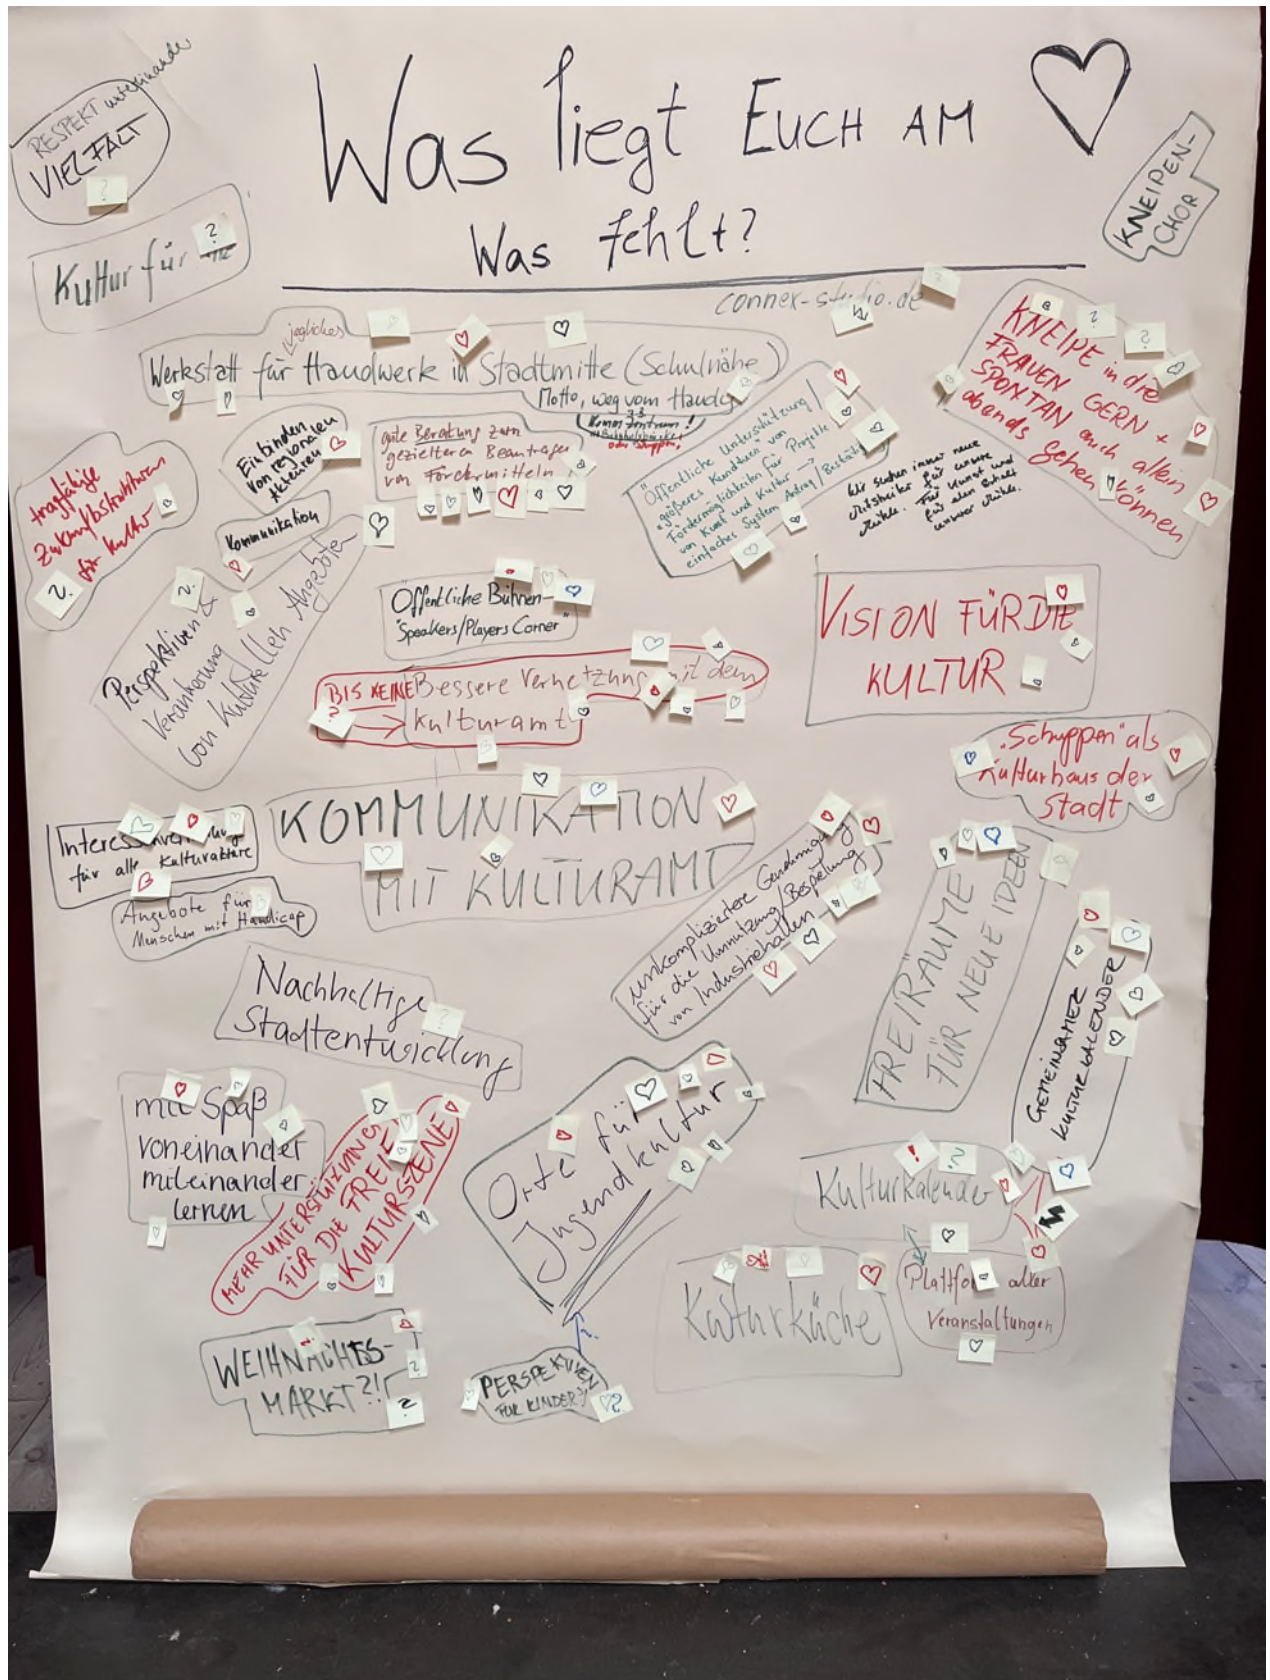 Was liegt EUCH AM
Was fehlt?
RESPEKT untereinander
VIELFALT
?
Kultur für
?
KNEIPEN-
CHOR
connex-studio.de
jegliches
Werkstatt für Handwerk in Stadtmitte (Schulnähe)
Motto, weg vom Handy
KNEIPE in die
FRAUEN GERN +
SPONTAN auch allein
abends gehen können
tragfähige
Zukunftsstrukturen
für Kultur
?
Einbinden
von regionalen
Akteuren
gute Beratung zum
gezielteren Beantragen
von Fördermitteln
Komm Zentrum!
oder Schuppen!
"Öffentliche Unterstützung /
"größeres Kundtuen" von
Fördermöglichkeiten für Projekte
von Kunst und Kultur →
einfaches System Antrag/Bestät.
Wir suchen immer neue
Mitstreiter für unsere
Mühle. Für Kunst und
für den Erhalt
unserer Mühle.
Kommunikation
Perspektiven &
Verankerung
von kulturellen Angeboten
Öffentliche Bühnen-
"Speakers/Players Corner"
VISION FÜR DIE
KULTUR
BIS KEINE Bessere Vernetzung mit dem
Kulturamt
"Schuppen" als
Kulturhaus der
Stadt
KOMMUNIKATION
MIT KULTURAMT
für alle Kulturakteure
Angebote für
Menschen mit Handicap
unkompliziertere Genehmigung
für die Umnutzung/Bespielung
von Industriehallen
FREIRÄUME
FÜR NEUE IDEEN
GEMEINSAMER
KULTURKALENDER
Nachhaltige
Stadtentwicklung
?
mit Spaß
voneinander
miteinander
lernen
MEHR UNTERSTÜTZUNG
FÜR DIE FREIE
KULTURSZENE
Orte für
Jugendkultur
Kulturkalender
!
Kulturküche
Plattform aller
Veranstaltungen
WEIHNACHTS-
MARKT?!
?
?
PERSPEKTIVEN
FÜR KINDER?!
?